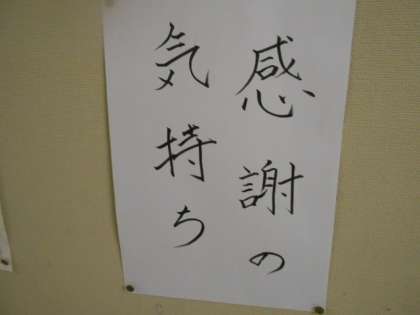 感謝の
気持ち